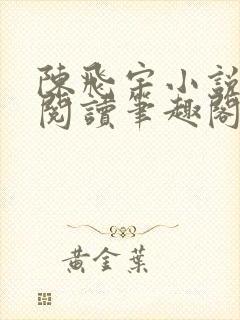 陳飛宇小說
閱讀筆趣閣
黃金葉